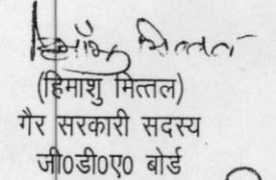 हिमाँशु मित्तल
(हिमाशु मित्तल)
गैर सरकारी सदस्य
जी0डी0ए0 बोर्ड